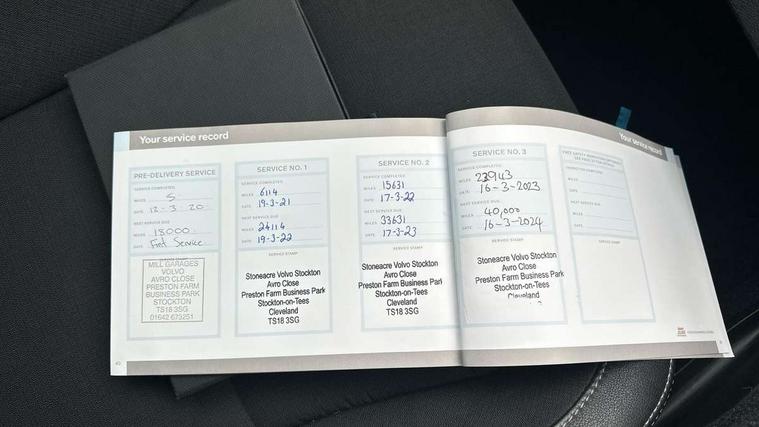 Your service record
Your service record
PRE-DELIVERY SERVICE
SERVICE COMPLETED
MILES 5
DATE 12-3-20
NEXT SERVICE DUE
MILES 18000
DATE First Service
MILL GARAGES
VOLVO
AVRO CLOSE
PRESTON FARM
BUSINESS PARK
STOCKTON
TS18 3SG
01642 673251
SERVICE NO. 1
SERVICE COMPLETED
MILES 6114
DATE 19-3-21
NEXT SERVICE DUE
MILES 24114
DATE 19-3-22
SERVICE STAMP
Stoneacre Volvo Stockton
Avro Close
Preston Farm Business Park
Stockton-on-Tees
Cleveland
TS18 3SG
SERVICE NO. 2
SERVICE COMPLETED
MILES 15631
DATE 17-3-22
NEXT SERVICE DUE
MILES 33631
DATE 17-3-23
SERVICE STAMP
Stoneacre Volvo Stockton
Avro Close
Preston Farm Business Park
Stockton-on-Tees
Cleveland
TS18 3SG
SERVICE NO. 3
SERVICE COMPLETED
MILES 23943
DATE 16-3-2023
NEXT SERVICE DUE
MILES 40,000
DATE 16-3-2024
SERVICE STAMP
Stoneacre Volvo Stockton
Avro Close
Preston Farm Business Park
Stockton-on-Tees
Cleveland
MILES
DATE
NEXT SERVICE DUE
MILES
DATE
SERVICE STAMP